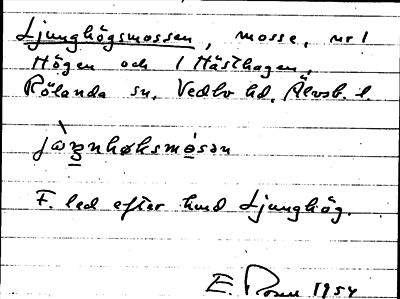 Ljunghögsmossen, mosse, nr 1
Högen och 1 Hästhagen,
Rölanda sn. Vedbo hd. Älvsb. l.
F. led efter hmd Ljunghög.
E. Rosen 1954